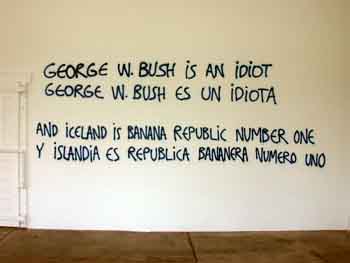 GEORGE W. BUSH iS AN iDiOT
GEORGE W. BUSH ES UN iDiOTA
AND iCELAND iS BANANA REPUBLIC NUMBER ONE
Y iSLANDiA ES REPUBLiCA BANANERA NUMERO UNO